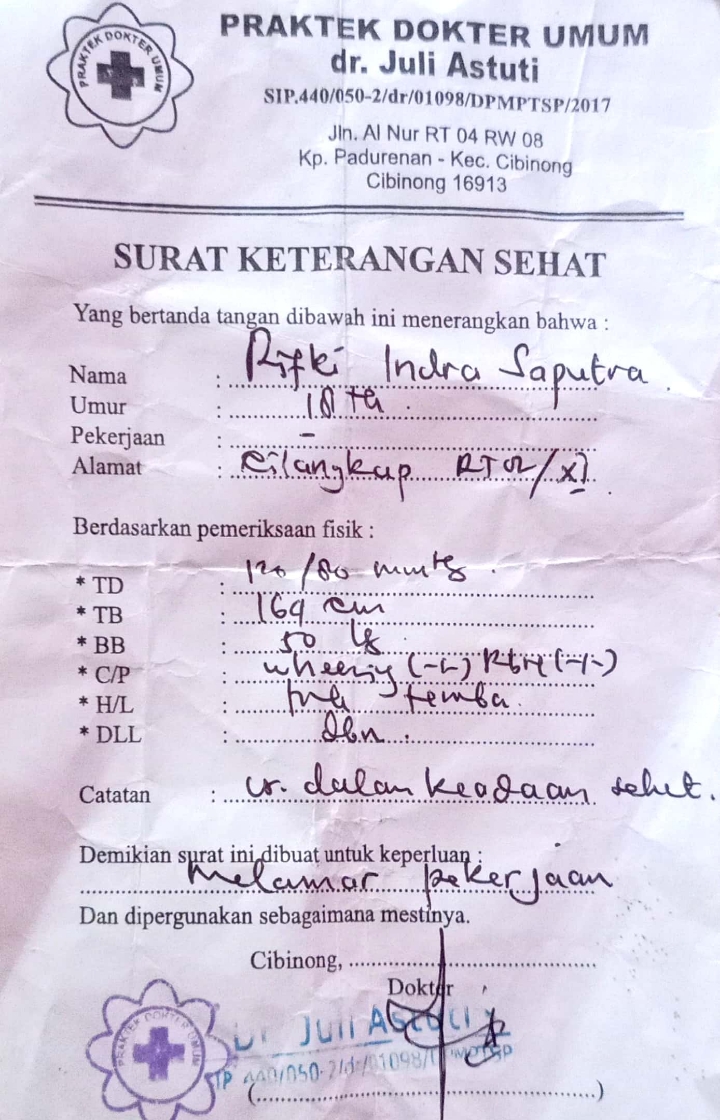 PRAKTEK DOKTER UMUM
PRAKTEK DOKTER UMUM
dr. Juli Astuti
SIP.440/050-2/dr/01098/DPMPTSP/2017
Jln. Al Nur RT 04 RW 08
Kp. Padurenan - Kec. Cibinong
Cibinong 16913
SURAT KETERANGAN SEHAT
Yang bertanda tangan dibawah ini menerangkan bahwa :
Nama : Rifki Indra Saputra
Umur : 18 th
Pekerjaan : -
Alamat : Cilangkap RT 02/XI
Berdasarkan pemeriksaan fisik :
* TD : 120/80 mmHg
* TB : 169 cm
* BB : 50 kg
* C/P : wheezing (-/-) Rbh (-/-)
* H/L : teraba
* DLL : dbn
Catatan : dalam keadaan sehat.
Demikian surat ini dibuat untuk keperluan :
Melamar pekerjaan
Dan dipergunakan sebagaimana mestinya.
Cibinong,
Dokter
PRAKTEK DOKTER UMUM
Dr Juli Astuti
440/050-2/dr/01098/
(
)